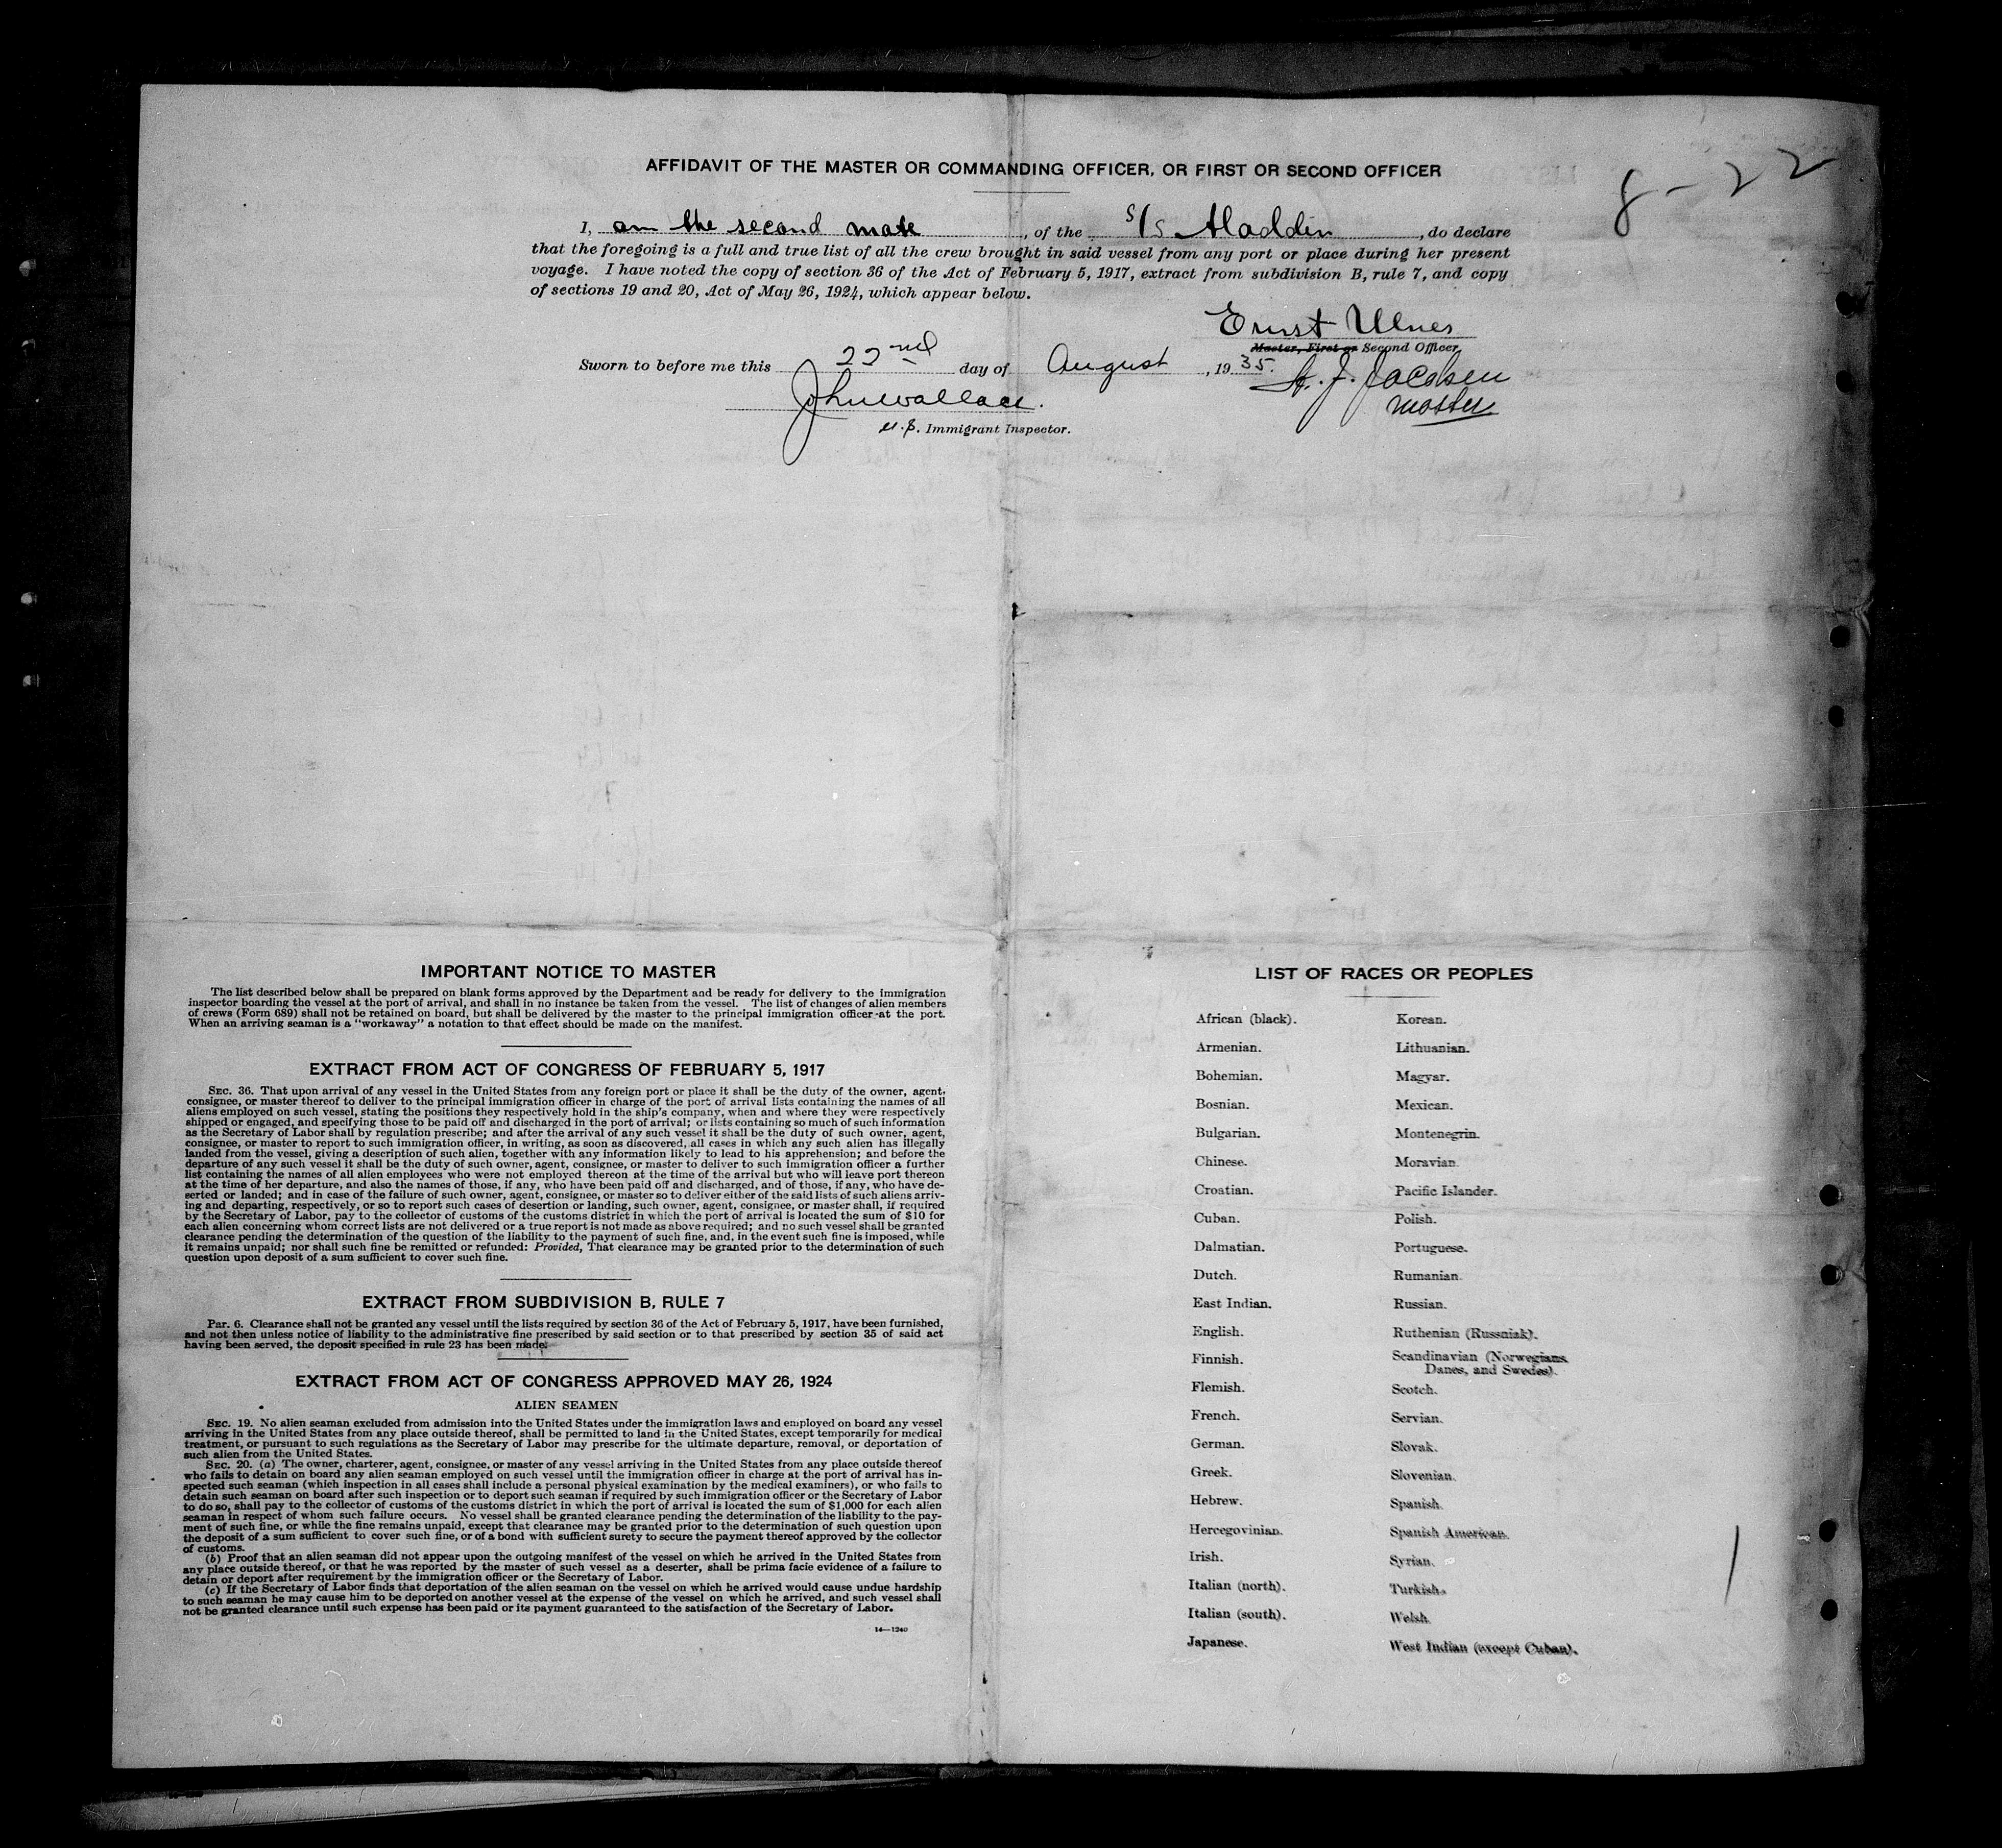 8-22
AFFIDAVIT OF THE MASTER OR COMMANDING OFFICER, OR FIRST OR SECOND OFFICER
I, am the second mate, of the S/S Aladdin, do declare
that the foregoing is a full and true list of all the crew brought in said vessel from any port or place during her present
voyage. I have noted the copy of section 36 of the Act of February 5, 1917, extract from subdivision B, rule 7, and copy
of sections 19 and 20, Act of May 26, 1924, which appear below.
Ernst Ulnes
Master, First or Second Officer.
Sworn to before me this 22nd day of August, 1935.
John Wallace.
U.S. Immigrant Inspector.
J. Jacobsen
Master
IMPORTANT NOTICE TO MASTER
The list described below shall be prepared on blank forms approved by the Department and be ready for delivery to the immigration
inspector boarding the vessel at the port of arrival, and shall in no instance be taken from the vessel. The list of changes of alien members
of crews (Form 689) shall not be retained on board, but shall be delivered by the master to the principal immigration officer at the port.
When an arriving seaman is a "workaway" a notation to that effect should be made on the manifest.
EXTRACT FROM ACT OF CONGRESS OF FEBRUARY 5, 1917
SEC. 36. That upon arrival of any vessel in the United States from any foreign port or place it shall be the duty of the owner, agent,
consignee, or master thereof to deliver to the principal immigration officer in charge of the port of arrival lists containing the names of all
aliens employed on such vessel, stating the positions they respectively hold in the ship's company, when and where they were respectively
shipped or engaged, and specifying those to be paid off and discharged in the port of arrival; or lists containing so much of such information
as the Secretary of Labor shall by regulation prescribe; and after the arrival of any such vessel it shall be the duty of such owner, agent,
consignee, or master to report to such immigration officer, in writing, as soon as discovered, all cases in which any such alien has illegally
landed from the vessel, giving a description of such alien, together with any information likely to lead to his apprehension; and before the
departure of any such vessel it shall be the duty of such owner, agent, consignee, or master to deliver to such immigration officer a further
list containing the names of all alien employees who were not employed thereon at the time of the arrival but who will leave port thereon
at the time of her departure, and also the names of those, if any, who have been paid off and discharged, and of those, if any, who have de-
serted or landed; and in case of the failure of such owner, agent, consignee, or master so to deliver either of the said lists of such aliens arriv-
ing and departing, respectively, or so to report such cases of desertion or landing, such owner, agent, consignee, or master shall, if required
by the Secretary of Labor, pay to the collector of customs of the customs district in which the port of arrival is located the sum of $10 for
each alien concerning whom correct lists are not delivered or a true report is not made as above required; and no such vessel shall be granted
clearance pending the determination of the question of the liability to the payment of such fine, and, in the event such fine is imposed, while
it remains unpaid; nor shall such fine be remitted or refunded: Provided, That clearance may be granted prior to the determination of such
question upon deposit of a sum sufficient to cover such fine.
EXTRACT FROM SUBDIVISION B, RULE 7
Par. 6. Clearance shall not be granted any vessel until the lists required by section 36 of the Act of February 5, 1917, have been furnished,
and not then unless notice of liability to the administrative fine prescribed by said section or to that prescribed by section 35 of said act
having been served, the deposit specified in rule 23 has been made.
EXTRACT FROM ACT OF CONGRESS APPROVED MAY 26, 1924
ALIEN SEAMEN
SEC. 19. No alien seaman excluded from admission into the United States under the immigration laws and employed on board any vessel
arriving in the United States from any place outside thereof, shall be permitted to land in the United States, except temporarily for medical
treatment, or pursuant to such regulations as the Secretary of Labor may prescribe for the ultimate departure, removal, or deportation of
such alien from the United States.
SEC. 20. (a) The owner, charterer, agent, consignee, or master of any vessel arriving in the United States from any place outside thereof
who fails to detain on board any alien seaman employed on such vessel until the immigration officer in charge at the port of arrival has in-
spected such seaman (which inspection in all cases shall include a personal physical examination by the medical examiners), or who fails to
detain such seaman on board after such inspection or to deport such seaman if required by such immigration officer or the Secretary of Labor
to do so, shall pay to the collector of customs of the customs district in which the port of arrival is located the sum of $1,000 for each alien
seaman in respect of whom such failure occurs. No vessel shall be granted clearance pending the determination of the liability to the pay-
ment of such fine, or while the fine remains unpaid, except that clearance may be granted prior to the determination of such question upon
the deposit of a sum sufficient to cover such fine, or of a bond with sufficient surety to secure the payment thereof approved by the collector
of customs.
(b) Proof that an alien seaman did not appear upon the outgoing manifest of the vessel on which he arrived in the United States from
any place outside thereof, or that he was reported by the master of such vessel as a deserter, shall be prima facie evidence of a failure to
detain or deport after requirement by the immigration officer or the Secretary of Labor.
(c) If the Secretary of Labor finds that deportation of the alien seaman on the vessel on which he arrived would cause undue hardship
to such seaman he may cause him to be deported on another vessel at the expense of the vessel on which he arrived, and such vessel shall
not be granted clearance until such expense has been paid or its payment guaranteed to the satisfaction of the Secretary of Labor.
14—1240
LIST OF RACES OR PEOPLES
African (black).
Armenian.
Bohemian.
Bosnian.
Bulgarian.
Chinese.
Croatian.
Cuban.
Dalmatian.
Dutch.
East Indian.
English.
Finnish.
Flemish.
French.
German.
Greek.
Hebrew.
Hercegovinian.
Irish.
Italian (north).
Italian (south).
Japanese.
Korean.
Lithuanian.
Magyar.
Mexican.
Montenegrin.
Moravian.
Pacific Islander.
Polish.
Portuguese.
Rumanian.
Russian.
Ruthenian (Russniak).
Scandinavian (Norwegians,
Danes, and Swedes).
Scotch.
Servian.
Slovak.
Slovenian.
Spanish.
Spanish American.
Syrian.
Turkish.
Welsh.
West Indian (except Cuban).